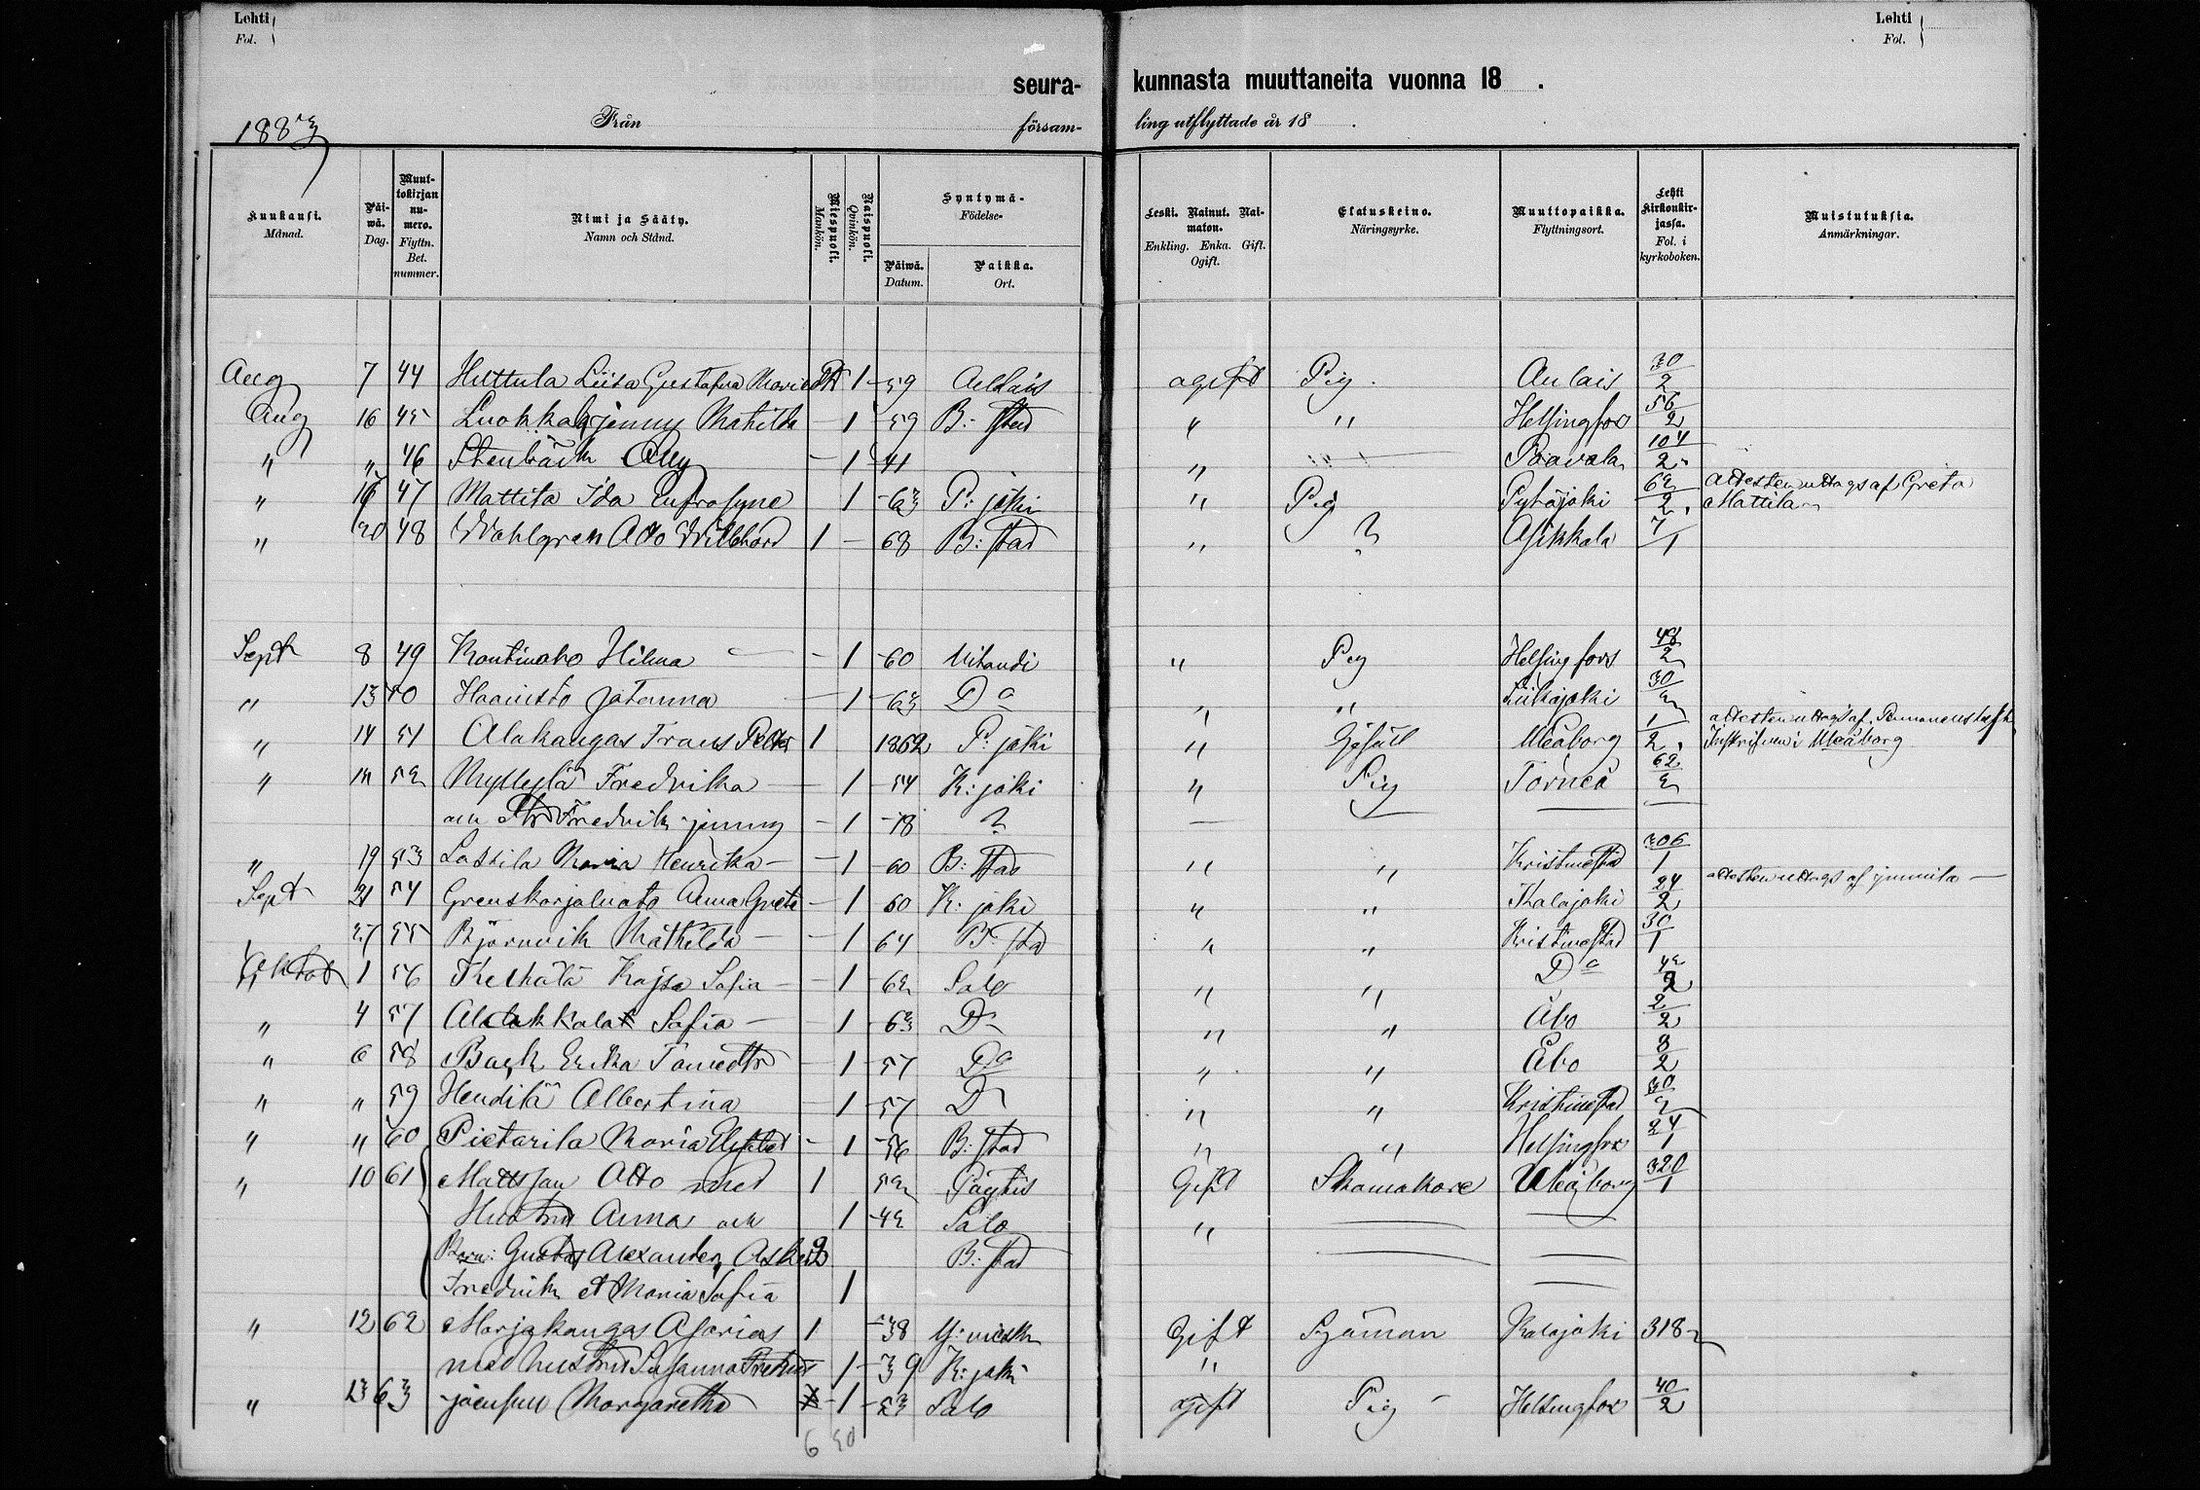 Lehti Fol.
Lehti Fol.
seura- kunnasta muuttaneita vuonna 18 .
1883 Från försam- ling utflyttade år 18 .
Kuukausi. Månad.
Päi-wä. Dag.
Muut-tokirjan nu-mero. Flyttn. Bet. nummer.
Nimi ja Sääty. Namn och Stånd.
Miespuoli. Mankön.
Naispuoli. Qvinkön.
Syntymä- Födelse-
Päiwä. Datum.
Paikka. Ort.
Leski. Nainut. Nai-maton. Enkling. Enka. Gift. Ogift.
Elatuskeino. Näringsyrke.
Muuttopaikka. Flyttningsort.
Lehti Kirkonkir-jassa. Fol. i kyrkoboken.
Muistutuksia. Anmärkningar.
Aug 7 44 Huttula Liisa Gustafva Maria 1 -59 ogift Pig. Aulais 30/2
Aug 16 45 Luokkala jenny Mathilda - 1 -59 B: stad " " Helsingfors 56/2
" " 46 Stenbäck Elly - 1 -41 " Paavola 104/2
" 16 47 Mattila Ida Eufrosyne 1 -63 P: joki " Pig Pyhäjoki 62/2 attesten uttags af Greta Mattila
" 20 48 Wahlgren Otto Willehard 1 - 68 B: stad " ? Asikkala 7/1
Sept 8 49 Kontinaho Hilma - - 1 -60 " Pig Helsingfors 48/2
" 13 50 Haaristo Johanna - 1 -63 Do " " Siikajoki 30/2
" 14 51 Alakangas Frans Petter 1 1862 P: joki " Gesäll Uleåborg 1/2 attesten uttags af
Uleåborg
" 14 52 Myllylä Fredrika - 1 -54 K: joki " Pig Torneå 62/2
och Fredrika jenny - 1 -78 ?
" 19 53 Lassila Maria Henrika - - 1 60 B: stad " " Kristinestad 306/1
Sept 21 54 Anna Greta - 1 60 K: joki " " Kalajoki 24/2 attesten uttags af
27 55 Björnvik Mathilda - - 1 64 B: stad " " Kristinestad 30/1
Oktob 1 56 Kajsa Sofia - - 1 -62 Salo " " Do 42/2
" 4 57 Sofia - - 1 -63 Do " " Åbo 2/2
" 6 58 Back Erika - 1 -57 Do " " Åbo 8/2
" " 59 Albertina - 1 -57 Do " " Kristinestad 30/2
" " 60 Pietarila Maria - 1 -56 B: stad " " Helsingfors 24/1
" 10 61 Mattsson Otto med 1 52 Gift Skomakare Uleåborg 320/1
Hustru Anna och 1 -42 Salo "
Barn: Gustaf Alexander, Oskar 2 B: stad
Fredrik et Maria Sofia 1
" 12 62 Marjakangas Asarias 1 -38 Gift Sjöman Kalajoki 318
med hustru Susanna 1 -39 K: joki "
" 23 63 Margaretha - 1 -53 Salo Gift Pig - Helsingfors 40/2
6 20